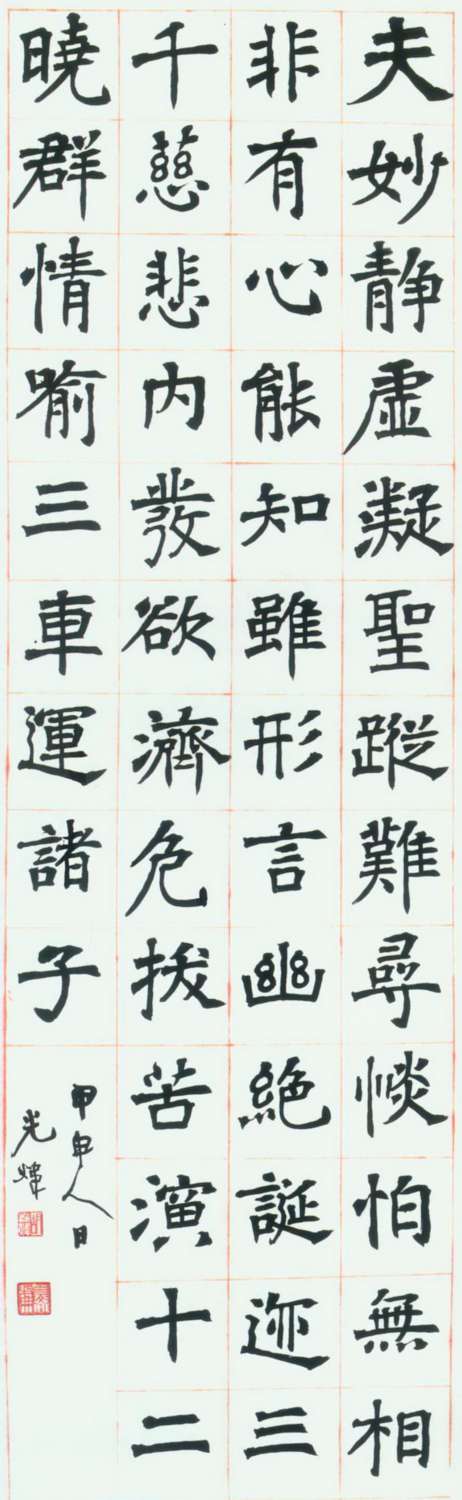 夫妙静虛凝聖蹤難尋惔怕無相
非有心能知雖形言幽絶誕迩三
千慈悲内發欲濟危拔苦演十二
曉群情喻三車運諸子
甲申人日
光煒